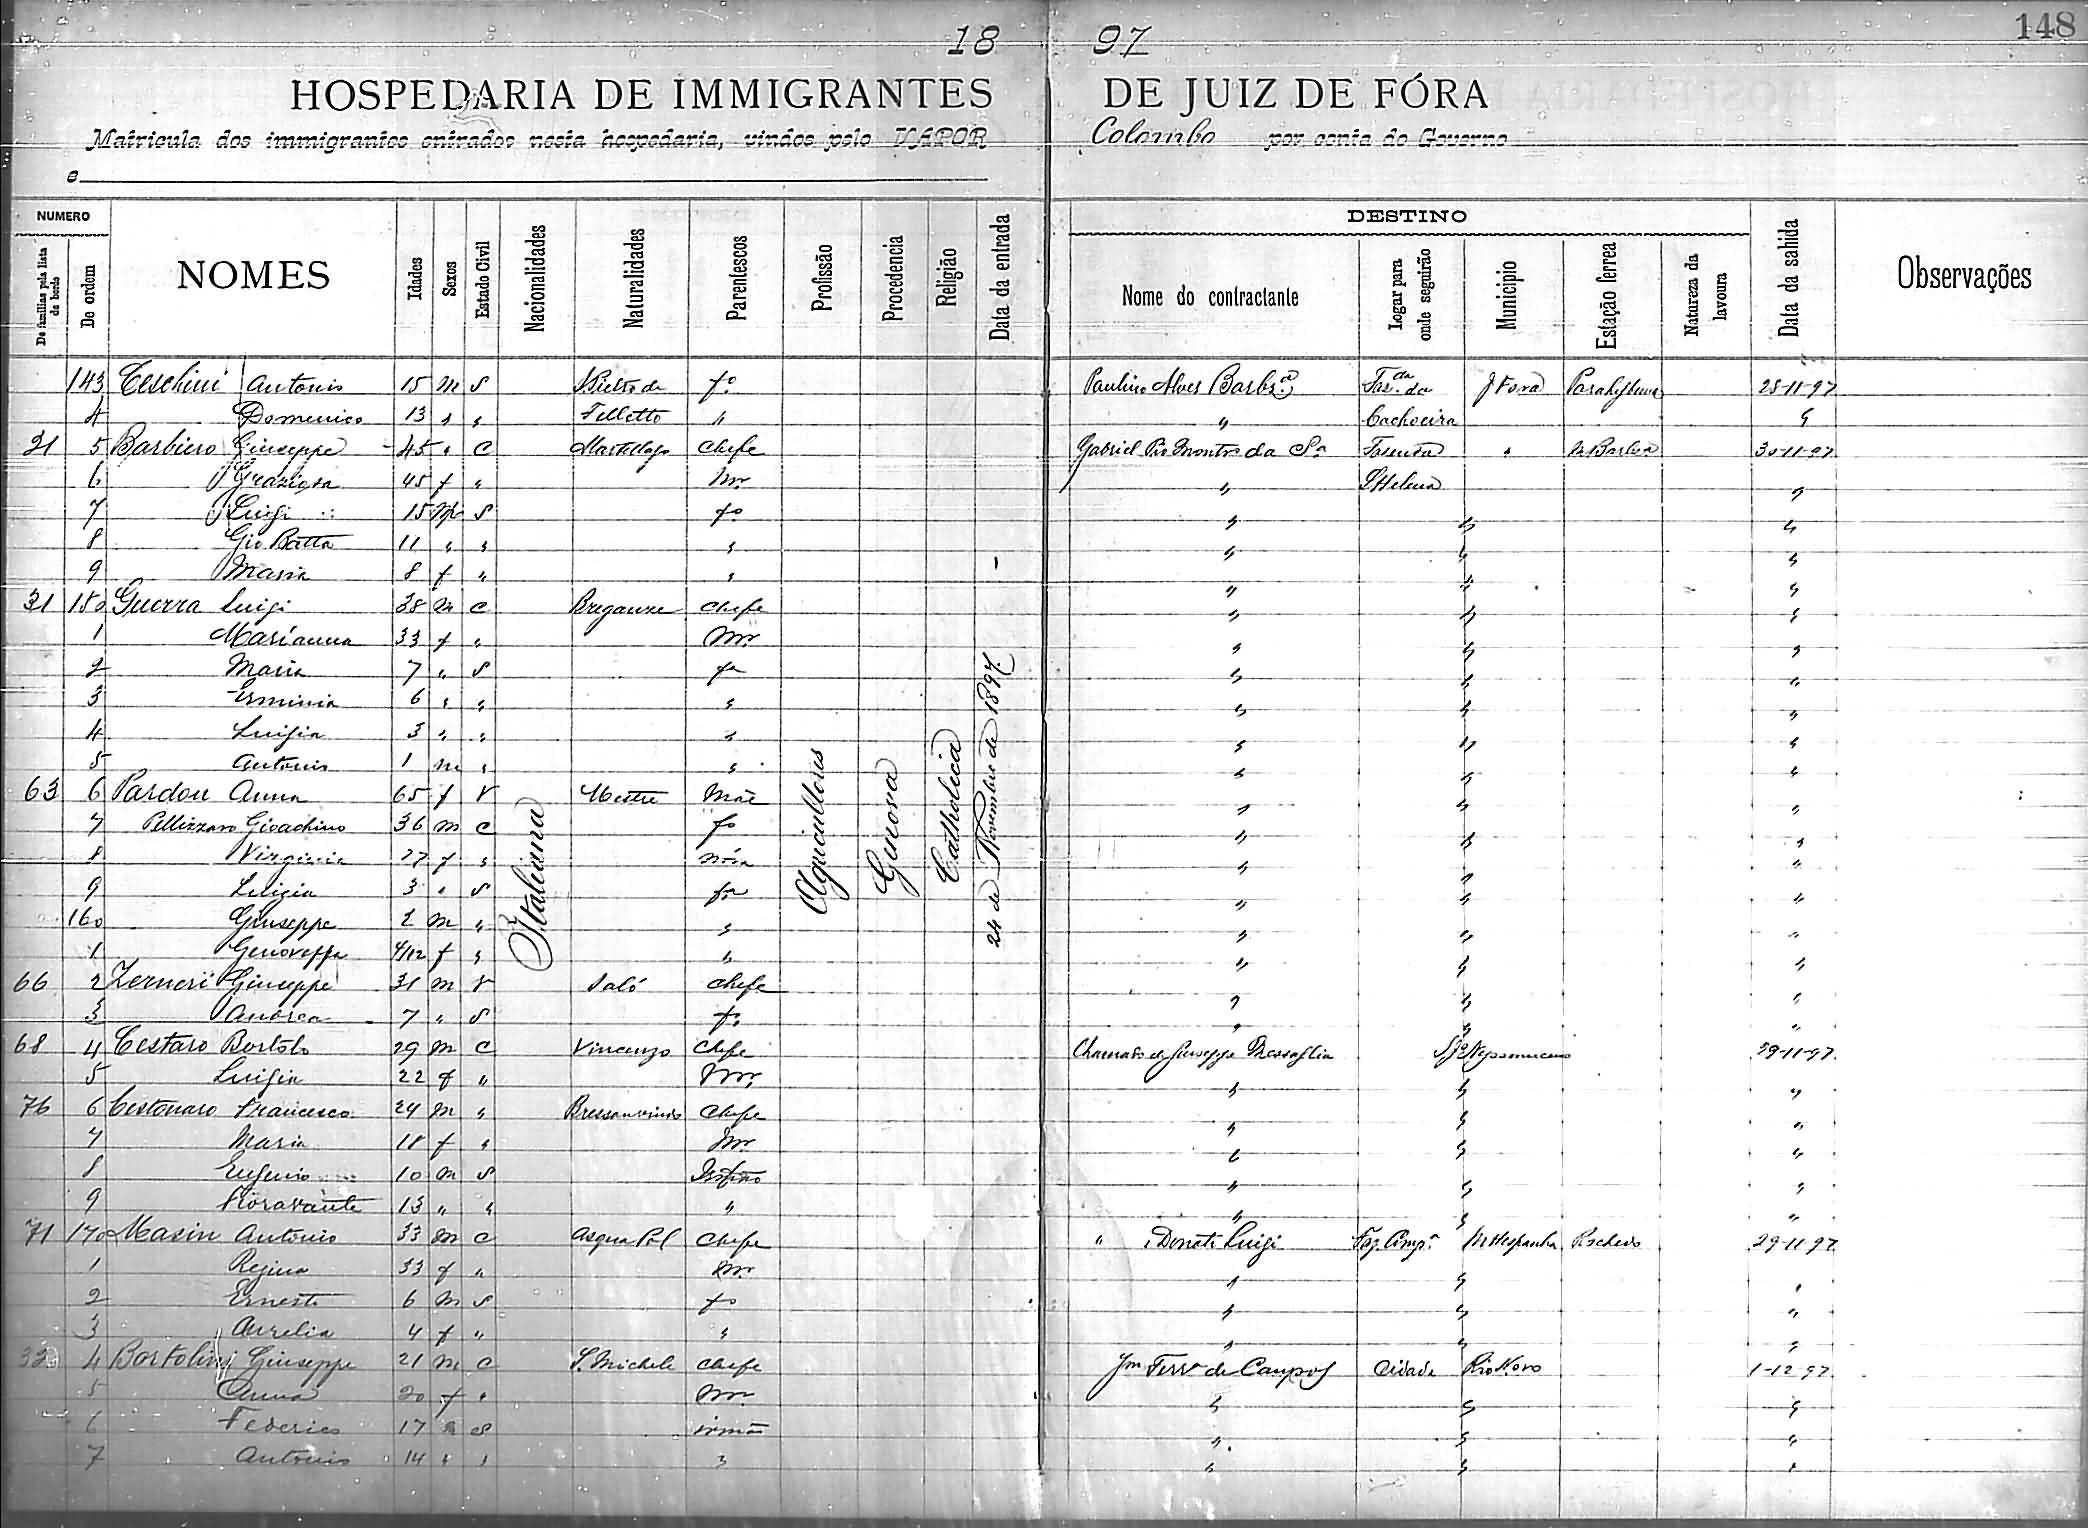 148
18 97
HOSPEDARIA DE IMMIGRANTES DE JUIZ DE FÓRA
Matricula dos immigrantes entrados nesta hospedaria, vindos pelo VAPOR Colombo por conta do Governo
e
NUMERO
De familias pela lista de bordo
De ordem
NOMES
Idades
Sexos
Estado Civil
Nacionalidades
Naturalidades
Parentescos
Profissão
Procedencia
Religião
Data da entrada
DESTINO
Nome do contractante
Logar para onde seguirão
Municipio
Estação ferrea
Natureza da lavoura
Data da sahida
Observações
143 Ceschini Antonio 15 m S S Pietro de fo Paulino Alves Barbza Faz.da da J Fora Parahybuna 28-11-97
4 Domenico 13 " " Felletto " " Cachoeira "
21 5 Barbiero Giuseppe 45 " C Martellago Chefe Gabriel Pio Montro da Sa Fazenda " 30-11-97
6 Graziosa 45 f " Mr " S Helena "
7 Luigi 15 m S fo " " "
8 Gio Batta 11 " " " " " "
9 Maria 8 f " " " " "
31 150 Guerra Luigi 38 m C Breganze Chefe " " "
1 Marianna 33 f " Mr " " "
2 Maria 7 " S fa " " "
3 Erminia 6 " " " " " "
4 Luigia 3 " " " " " "
5 Antonio 1 m " " " " "
63 6 Pardon Anna 65 f V Mestre Mãe " " "
7 Pellizzaro Gioachino 36 m C fo " " "
8 Virginia 27 f " nóra " " "
9 Luigia 3 " S fa " " "
160 Giuseppe 2 m " " " " "
1 Genoveffa 4/12 f " " " " "
66 2 Zerneri Giuseppe 31 m V Saló Chefe " " "
3 Andrea 7 " S fo " " "
68 4 Cestaro Bortolo 29 m C Vincenzo Chefe Chamado de Giuseppe S Jo Nepomuceno 29-11-97
5 Luigia 22 f " Mr " " "
76 6 Cestonaro Francesco 24 m " Bressanvido Chefe " " "
7 Maria 18 f " Mr " " "
8 Eugenio 10 m S Irmão " " "
9 Fioravante 13 " " " " " "
71 170 Masin Antonio 33 m C Acqua Pol Chefe " " Donati Luigi Faz. Campa M Hespanha Rochedo 29-11-97
1 Regina 33 f " Mr " " "
2 Ernesto 6 m S fo " " "
3 Aurelia 4 f " " " " "
4 Bortolini Giuseppe 21 m C S. Michele Chefe Jm Ferra de Campos Cidade Rio Novo 1-12-97
5 Anna 20 f " Mr " " "
6 Federico 17 S irmão " " "
7 Antonio 14 " " " " " "
Italiana
Agricultores
Genova
Catholica
24 de Novembro de 1897.